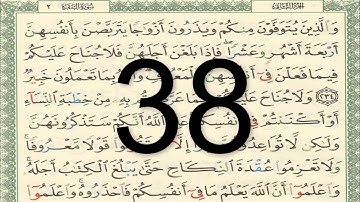 سُورَةُ البَقَرَةِ ٢
وَالَّذِينَ يُتَوَفَّوْنَ مِنكُمْ وَيَذَرُونَ أَزْوَاجًا يَتَرَبَّصْنَ بِأَنفُسِهِنَّ
أَرْبَعَةَ أَشْهُرٍ وَعَشْرًا فَإِذَا بَلَغْنَ أَجَلَهُنَّ فَلَا جُنَاحَ عَلَيْكُمْ
فِيمَا فَعَلْنَ فِي وَاللَّهُ بِمَا تَعْمَلُونَ خَبِيرٌ
٢٣٤ وَلَا جُنَاحَ عَلَيْكُمْ بِهِ مِنْ خِطْبَةِ النِّسَاءِ
أَوْ أَكْنَنتُمْ فِي اللَّهُ أَنَّكُمْ سَتَذْكُرُونَهُنَّ
وَلَٰكِن لَّا تُوَاعِدُوهُنَّ تَقُولُوا قَوْلًا مَّعْرُوفًا
وَلَا تَعْزِمُوا عُقْدَةَ النِّكَاحِ حَتَّىٰ يَبْلُغَ الْكِتَابُ أَجَلَهُ
وَاعْلَمُوا أَنَّ اللَّهَ يَعْلَمُ مَا فِي أَنفُسِكُمْ فَاحْذَرُوهُ وَاعْلَمُوا
38